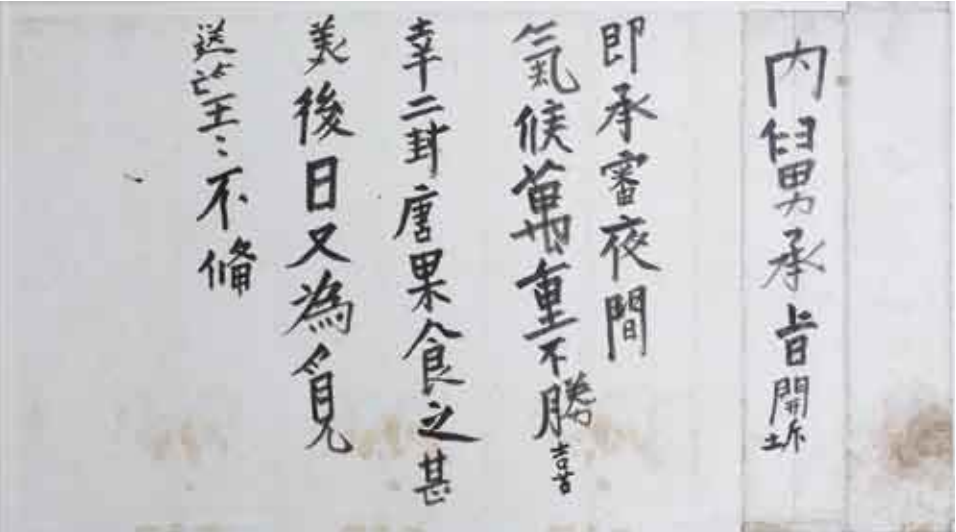 內舅男承旨開坼
即承審夜間
氣候萬重不勝喜
幸二封唐果食之甚
美後日又為覓
送亡王〻不備